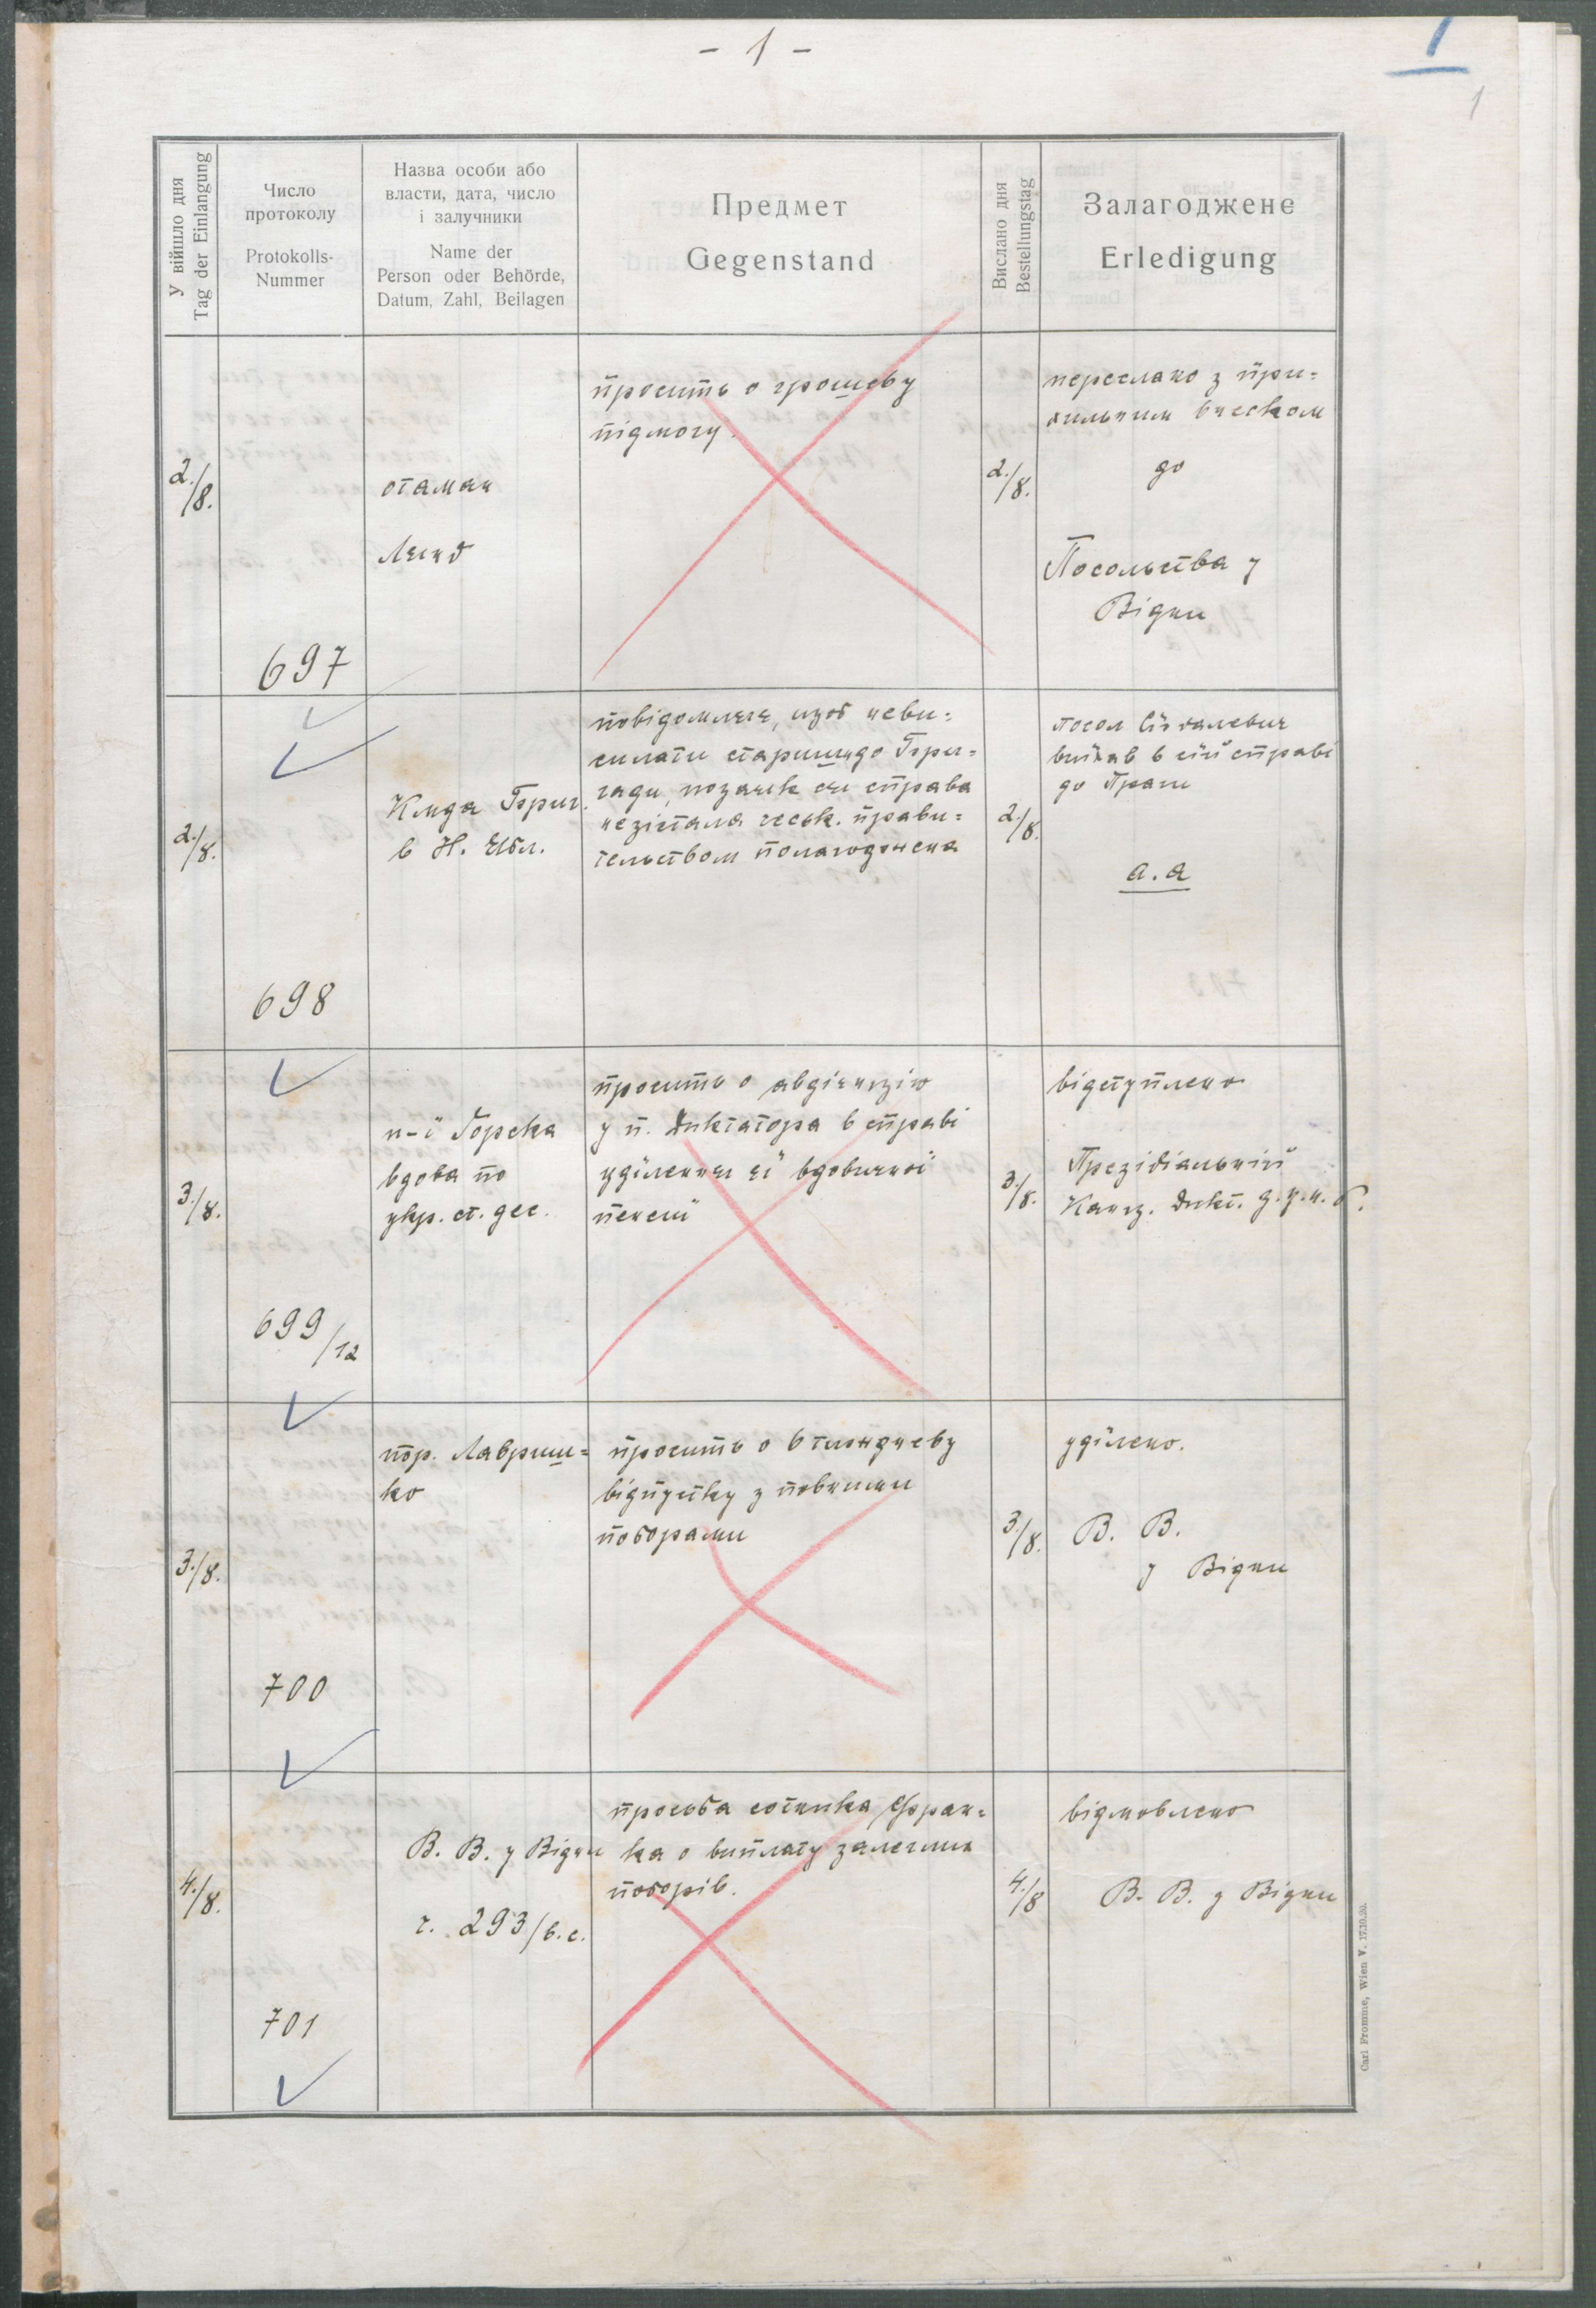 - 1 -
1
1
У війшло дня
Tag der Einlangung
Число
протоколу
Protokolls-
Nummer
Назва особи або
власти, дата, число
і залучники
Name der
Person oder Behörde,
Datum, Zahl, Beilagen
Предмет
Gegenstand
Вислано дня
Bestellungstag
Залагоджене
Erledigung
2./8.
697
отаман
просить о грошеву
підмогу.
2./8.
переслано з при=
хильним внеском
до
Посольства у
Відни
2./8.
698
Кмда Бриг.
в Н. Ябл.
повідомляє, щоб неви=
силати старшин до Бри=
гади, позаяк ся справа
незістала чеськ. прави=
тельством полагоджена
2./8.
посол
виїхав в сій справі
до Праги
а.а
3./8.
699/12
п-і Горска
вдова по
укр. ст. дес.
просить о авдієнцію
у п. Диктатора в справі
уділення єї вдовичної
пенсії
3./8.
відступлено
Презідіальній
Канц. Дикт. З.У.Н.Р.
3./8.
700
пор. Лавриш=
ко
просить о 6 тижднєву
відпустку з повними
поборами
3./8.
уділено.
В. В.
у Відни
4./8.
701
В. В. у Відни
ч. 293/в.с.
просьба сотника Фран=
ка о виплату залеглих
поборів.
4./8
відмовлено
В. В. у Відни
Carl Fromme, Wien V. 17.10.20.